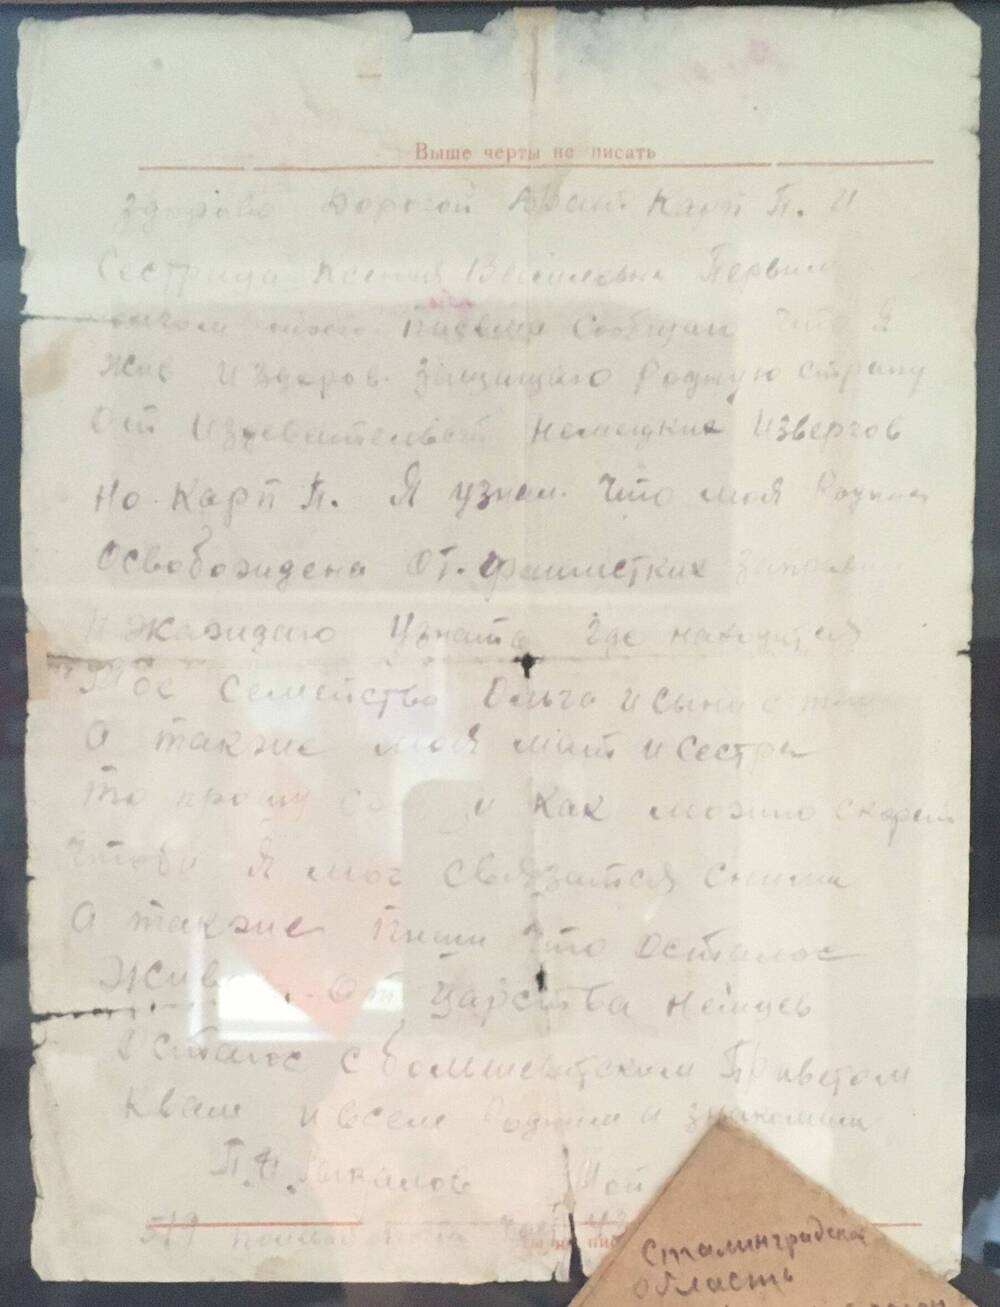 Выше черты не писать
Здорово Дорогой Брат Карп П. И
Сестрица Ксения Васильевна Первым
моего Писма Сообщаю Что Я
Жив И Здоров. Защищаю Родную страну
От Издевательств немецких Извергов
Но. Карп П. Я узнал. Что моя Родина
Освобождена От. фашистких
И Жажидаю Узнать Где находится
Мое Семейство Ольга и сыны
А также моя мат и Сестра
То прошу как можно скорей
Чтобы Я мог Связатся Сними
А также Пиши Что Осталос
Живо От Царства немцев
Остаюс с большевитским Приветом
Квам и всем Родным и знакомым
П. Мой
Полевая Почта
Сталинградская
область